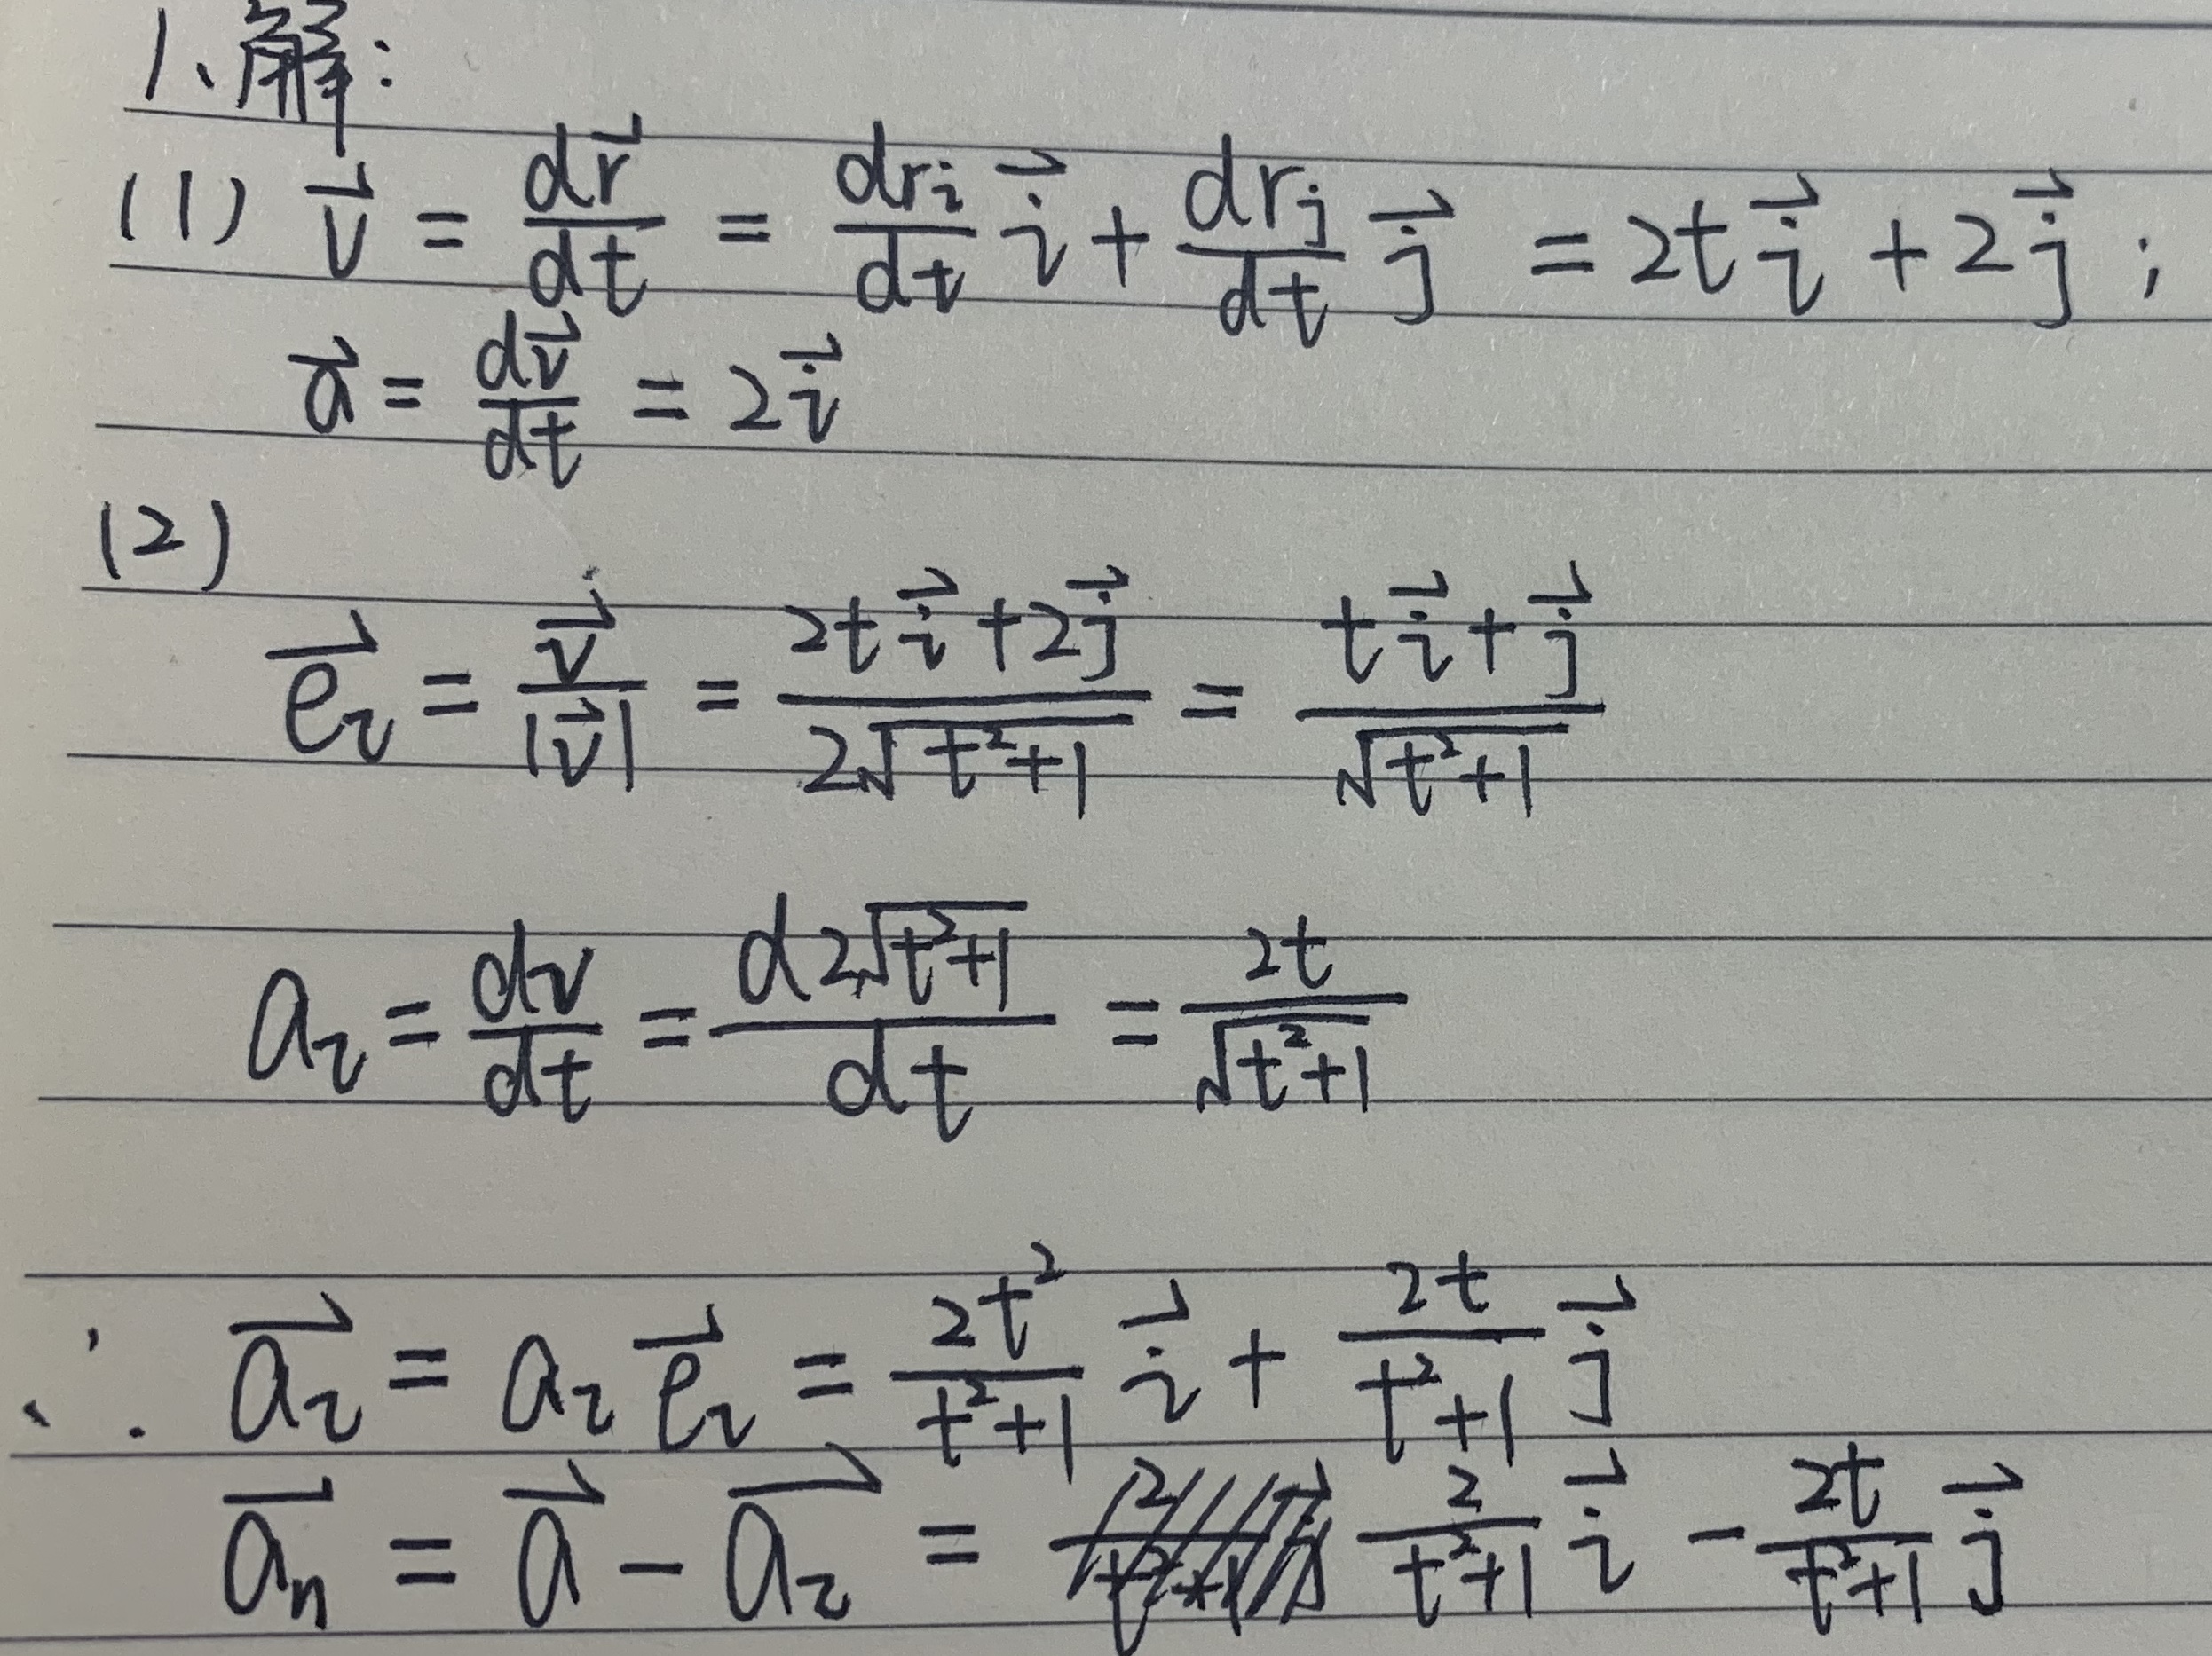 1、解:
(1) $\vec{v} = \frac{d\vec{r}}{dt} = \frac{dr_i}{dt}\vec{i} + \frac{dr_j}{dt}\vec{j} = 2t\vec{i} + 2\vec{j}$ ;
$\vec{a} = \frac{d\vec{v}}{dt} = 2\vec{i}$
(2)
$\vec{e_τ} = \frac{\vec{v}}{|\vec{v}|} = \frac{2t\vec{i}+2\vec{j}}{2\sqrt{t^2+1}} = \frac{t\vec{i}+\vec{j}}{\sqrt{t^2+1}}$
$a_τ = \frac{dv}{dt} = \frac{d2\sqrt{t^2+1}}{dt} = \frac{2t}{\sqrt{t^2+1}}$
∴ $\vec{a_τ} = a_τ\vec{e_τ} = \frac{2t^2}{t^2+1}\vec{i} + \frac{2t}{t^2+1}\vec{j}$
$\vec{a_n} = \vec{a} - \vec{a_τ} = \frac{2}{t^2+1}\vec{i} - \frac{2t}{t^2+1}\vec{j}$